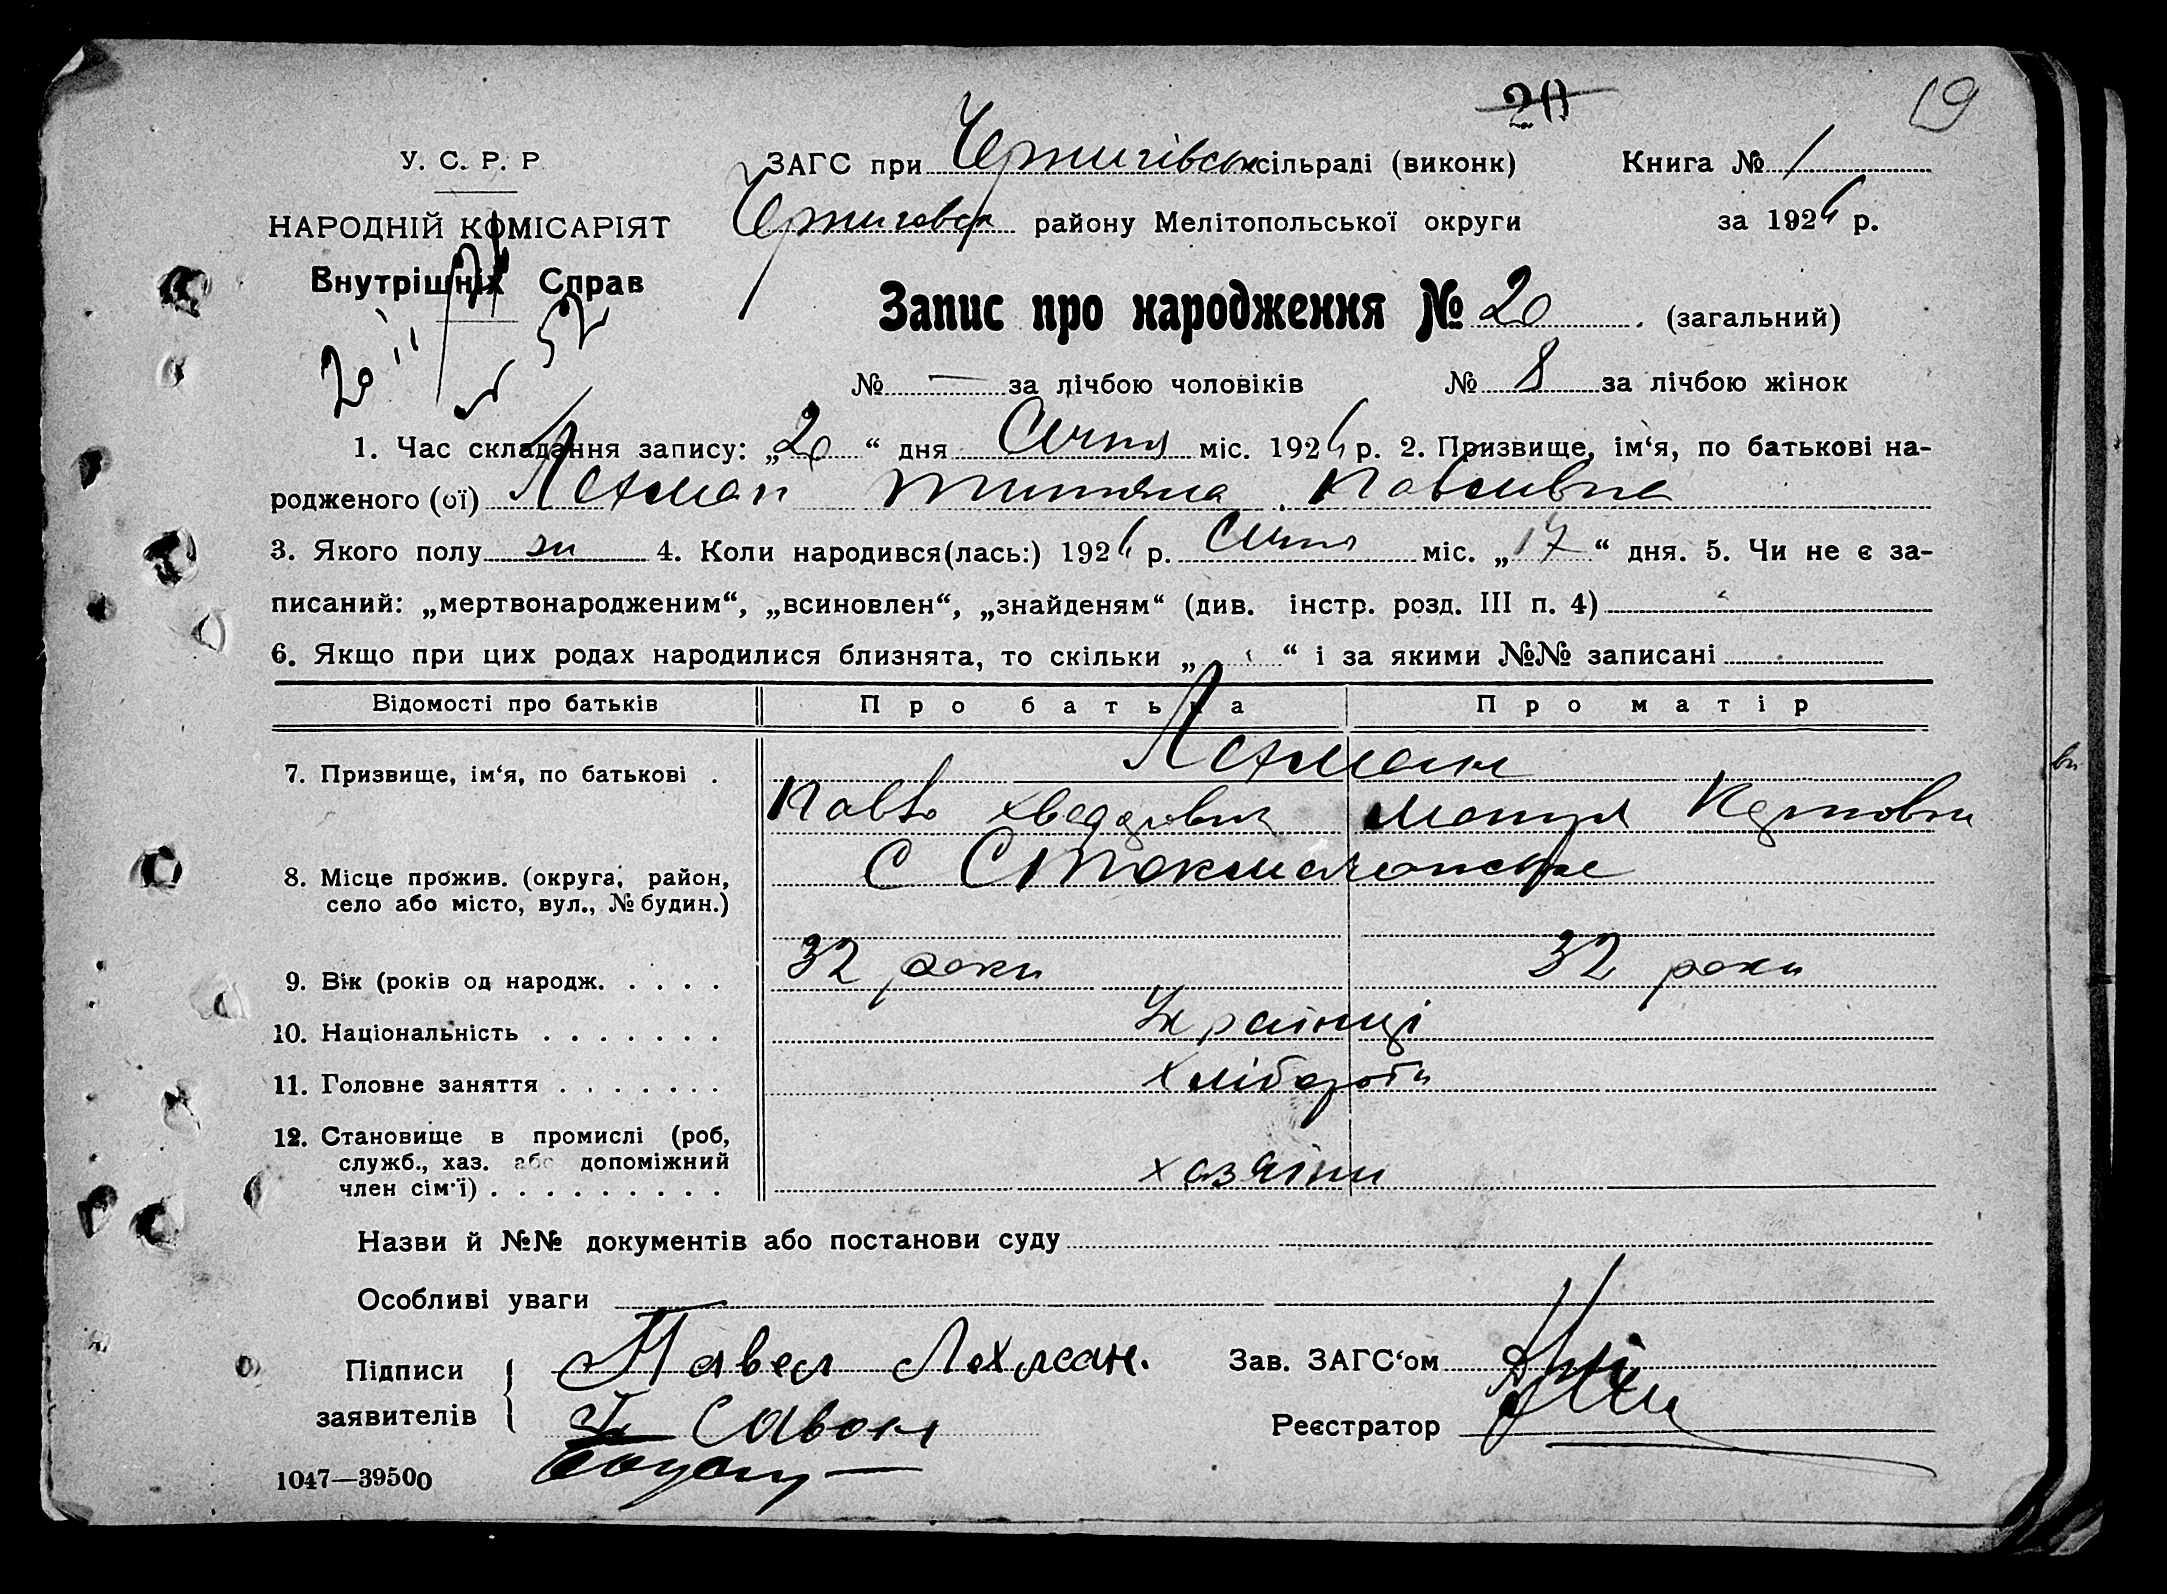 20 19
У. С. Р. Р. ЗАГС при Чернигівськ сільраді (виконк) Книга № 1
НАРОДНІЙ КОМІСАРІЯТ Черниговск району Мелітопольської округи за 1924 р.
Внутрішніх Справ
Запис про народження № 20 (загальний)
20
№ — за лічбою чоловіків № 8 за лічбою жінок
1. Час складання запису: „20“ дня Січня міс. 1924 р. 2. Призвище, ім‘я, по батькові на-
родженого (ої) Лехман Титяна Павливна
3. Якого полу жи 4. Коли народився(лась:) 1924 р. Січня міс. „17“ дня. 5. Чи не є за-
писаний: „мертвонародженим“, „всиновлен“, „знайденям“ (див. інстр. розд. III п. 4)
6. Якщо при цих родах народилися близнята, то скільки „ “ і за якими №№ записані
Відомості про батьків Про батька Про матір
7. Призвище, ім‘я, по батькові . Лехман
Павло Хведорович Мотря
8. Місце прожив. (округа, район, С Стокмачанське
село або місто, вул., № будин.)
9. Вік (років од народж. . . . . 32 роки 32 роки
10. Національність . . . . . . . Українці
11. Головне заняття . . . . . . . хлібороби
12. Становище в промислі (роб,
служб., хаз. або допоміжний хазяіни
член сім‘ї) . . . . . . . . .
Назви й №№ документів або постанови суду
Особливі уваги
Підписи Павел Лехман. Зав. ЗАГС‘ом
заявителів Савон Реєстратор
1047—39500